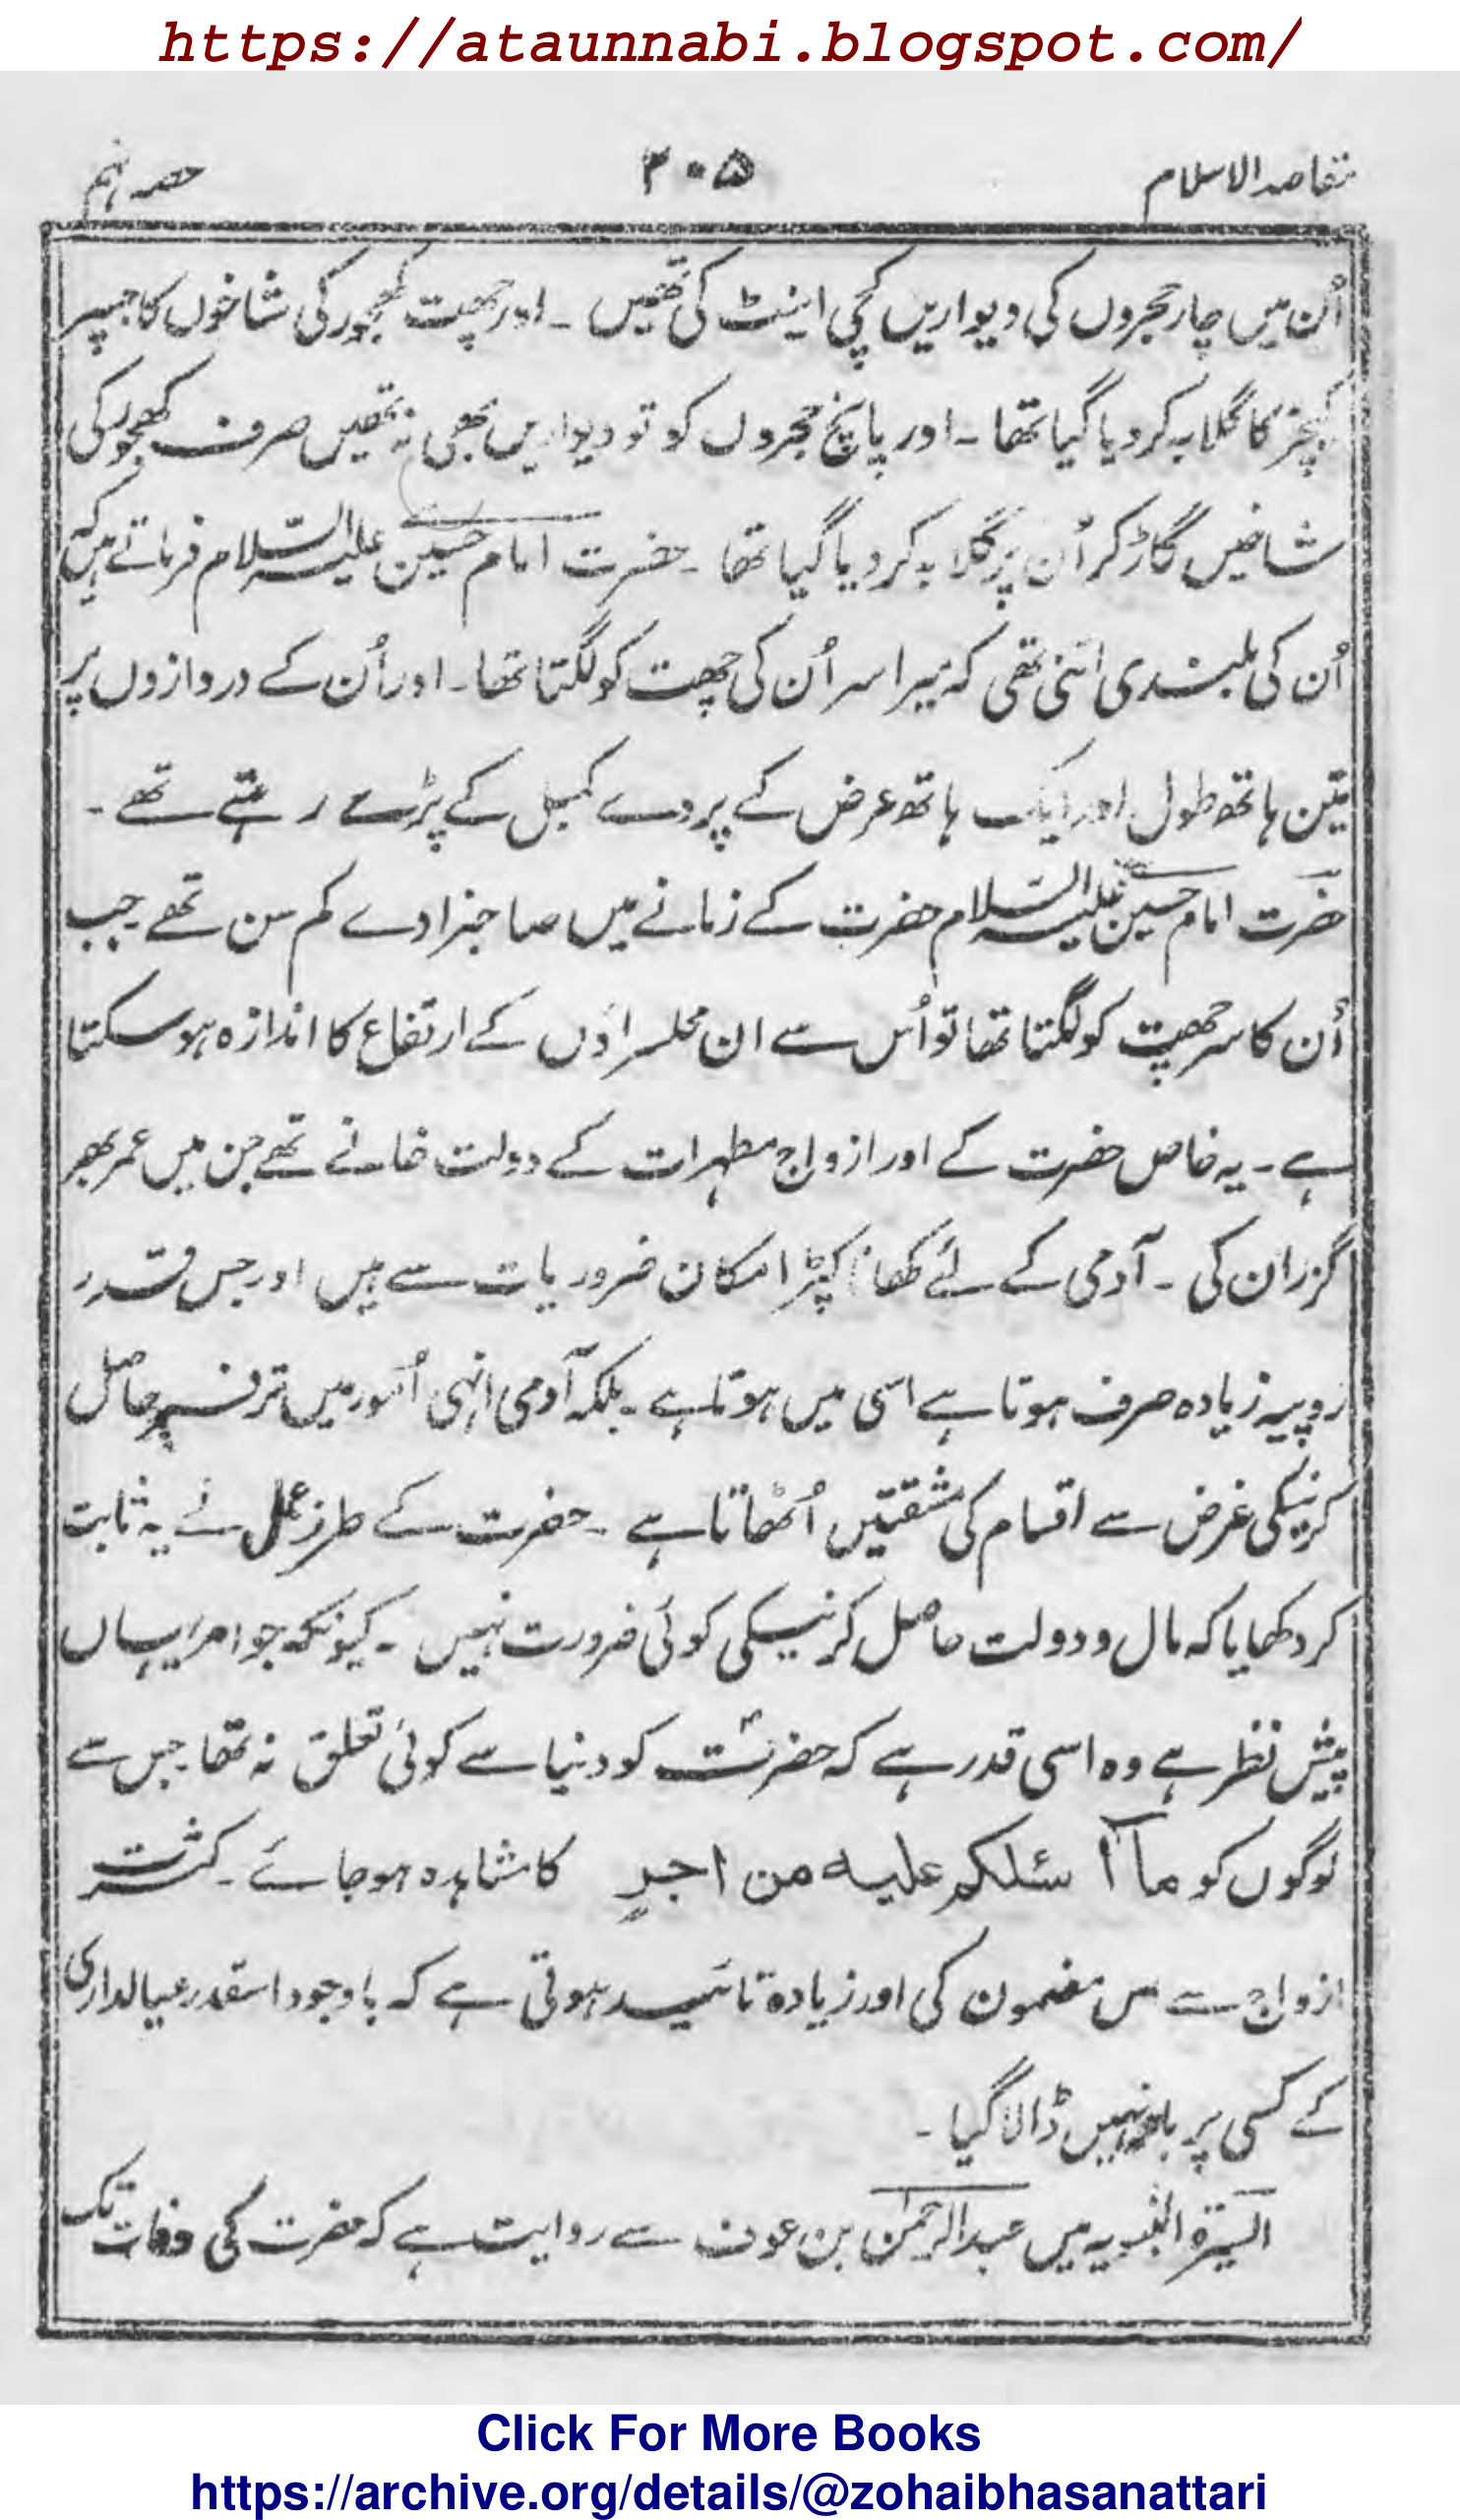 https://ataunnabi.blogspot.com/
مقاصد الاسلام ۲۰۵ حصہ نہم
اُن میں چار حجروں کی دیواریں کچی اینٹ کی تھیں ۔ اور چھت کھجور کی شاخوں کا جسپر
کیچڑ کا گلابہ کر دیا گیا تھا ۔ اور پانچ حجروں کو تو دیواریں بھی نہ تھیں صرف کھجور کی
شاخیں گاڑ کر اُن پر گلابہ کر دیا گیا تھا ۔ حضرت امام حسین علیہ السّلام فرماتے ہیں کہ
اُن کی بلندی اتنی تھی کہ میرا سر اُن کی چھت کو لگتا تھا ۔ اور اُن کے دروازوں پر
تین ہاتھ طول اور ایک ہاتھ عرض کے پردے کمبل کے پڑے رہتے تھے ۔
حضرت امام حسین علیہ السّلام حضرت کے زمانے میں صاحبزادے کم سن تھے جب
اُن کا سر چھت کو لگتا تھا تو اُس سے ان محلسراؤں کے ارتفاع کا اندازہ ہو سکتا
ہے ۔ یہ خاص حضرت کے اور ازواج مطہرات کے دولت خانے تھے جن میں عمر بھر
گزران کی ۔ آدمی کے لئے کھانا کپڑا مکان ضروریات سے ہیں اور جس قدر
روپیہ زیادہ صرف ہوتا ہے اسی میں ہوتا ہے ۔ بلکہ آدمی انہی اُمور میں ترفہ حاصل
کرنیکی غرض سے اقسام کی مشقتیں اُٹھاتا ہے ۔ حضرت کے طرز عمل نے یہ ثابت
کر دکھایا کہ مال و دولت حاصل کرنیکی کوئی ضرورت نہیں ۔ کیونکہ جو امر یہاں
پیش نظر ہے وہ اسی قدر ہے کہ حضرتؐ کو دنیا سے کوئی تعلق نہ تھا جس سے
لوگوں کو مآ اسئلکم علیہ من اجرٍ کا مشاہدہ ہو جائے ۔ کثرت
ازواج سے اس مضمون کی اور زیادہ تائید ہوتی ہے کہ باوجود اسقدر عیالداری
کے کسی پر بار نہیں ڈالا گیا ۔
السیرۃ النبویہ میں عبدالرحمٰن بن عوف سے روایت ہے کہ حضرت کی وفات تک
Click For More Books
https://archive.org/details/@zohaibhasanattari